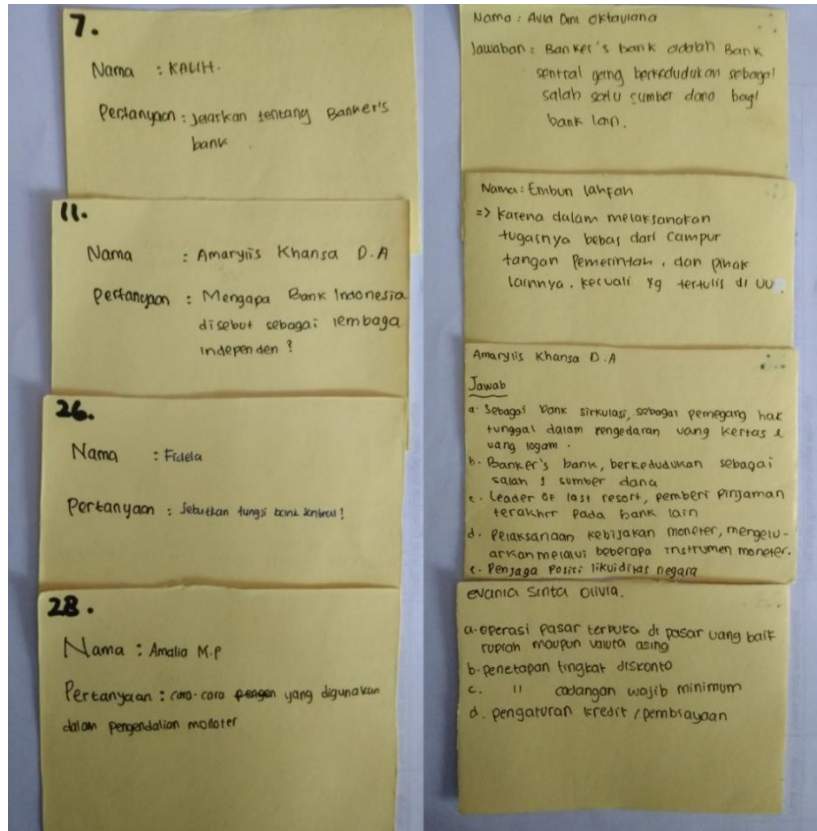 7.
Nama : KALIH.
Pertanyaan : Jelaskan tentang Banker's
bank
11.
Nama : Amaryllis Khansa D.A
Pertanyaan : Mengapa Bank Indonesia
disebut sebagai lembaga
independen ?
26.
Nama : Fidela
Pertanyaan : Sebutkan fungsi bank sentral !
28.
Nama : Amalia M.P
Pertanyaan : cara-cara yang digunakan
dalam pengendalian moneter
Nama : Avia Dini Oktaviana
Jawaban : Banker's bank adalah Bank
sentral yang berkedudukan sebagai
salah satu sumber dana bagi
bank lain.
Nama : Embun
=> Karena dalam melaksanakan
tugasnya bebas dari campur
tangan Pemerintah, dan pihak
lainnya, kecuali yg tertulis di UU
Amaryllis Khansa D.A
Jawab
a. Sebagai bank sirkulasi, sebagai pemegang hak
tunggal dalam pengedaran uang kertas &
uang logam.
b. Banker's bank, berkedudukan sebagai
salah 1 sumber dana
c. Leader of last resort, pemberi pinjaman
terakhir pada bank lain
d. Pelaksanaan kebijakan moneter, mengelu-
arkan melalui beberapa instrumen moneter.
e. Penjaga posisi likuiditas negara
evania sinta olivia.
a. operasi pasar terbuka di pasar uang baik
rupiah maupun valuta asing
b. penetapan tingkat diskonto
c. " cadangan wajib minimum
d. pengaturan kredit / pembiayaan